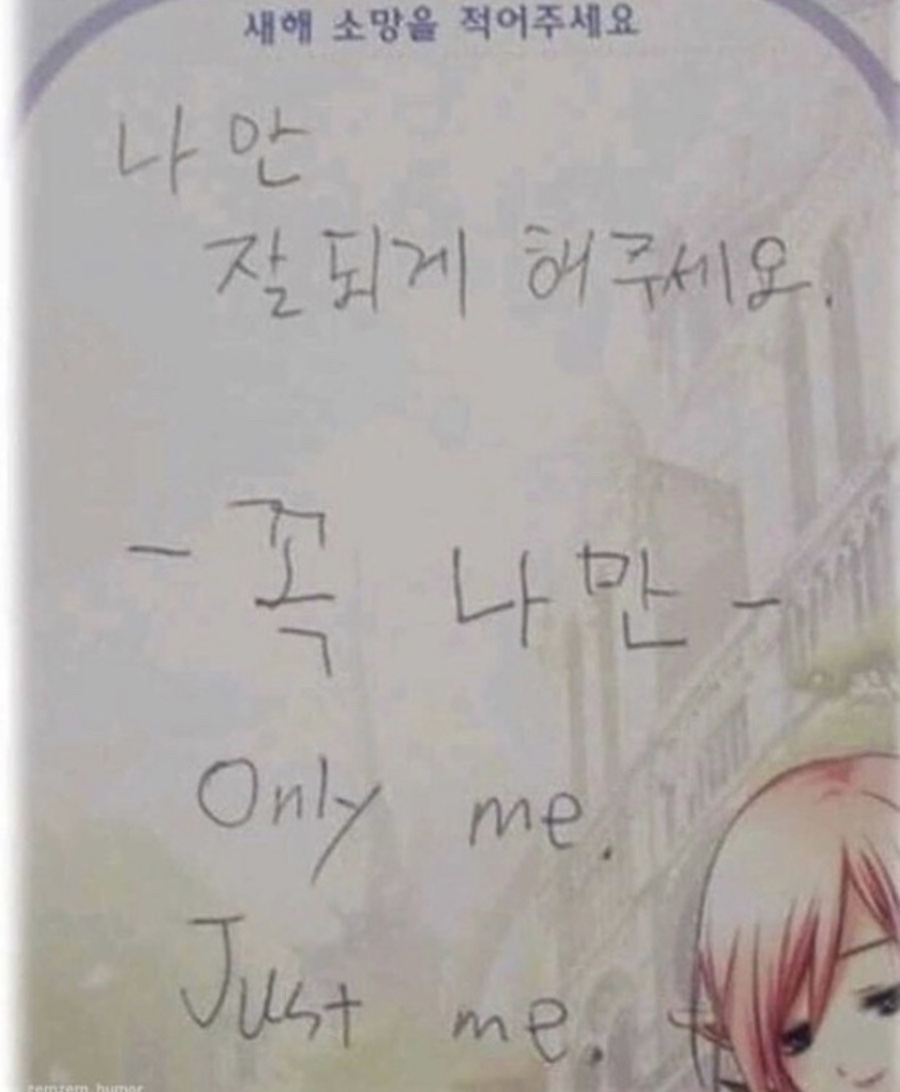 새해 소망을 적어주세요
나 안
잘되게 해주세요.
- 꼭 나만 -
Only me.
Just me.
zemzem_humor